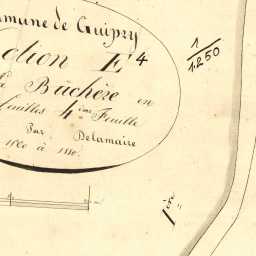 mune de Guipry
ction E4
Bûchère en
feuilles 4ème Feuille
Par Delamaire
à
1
1250